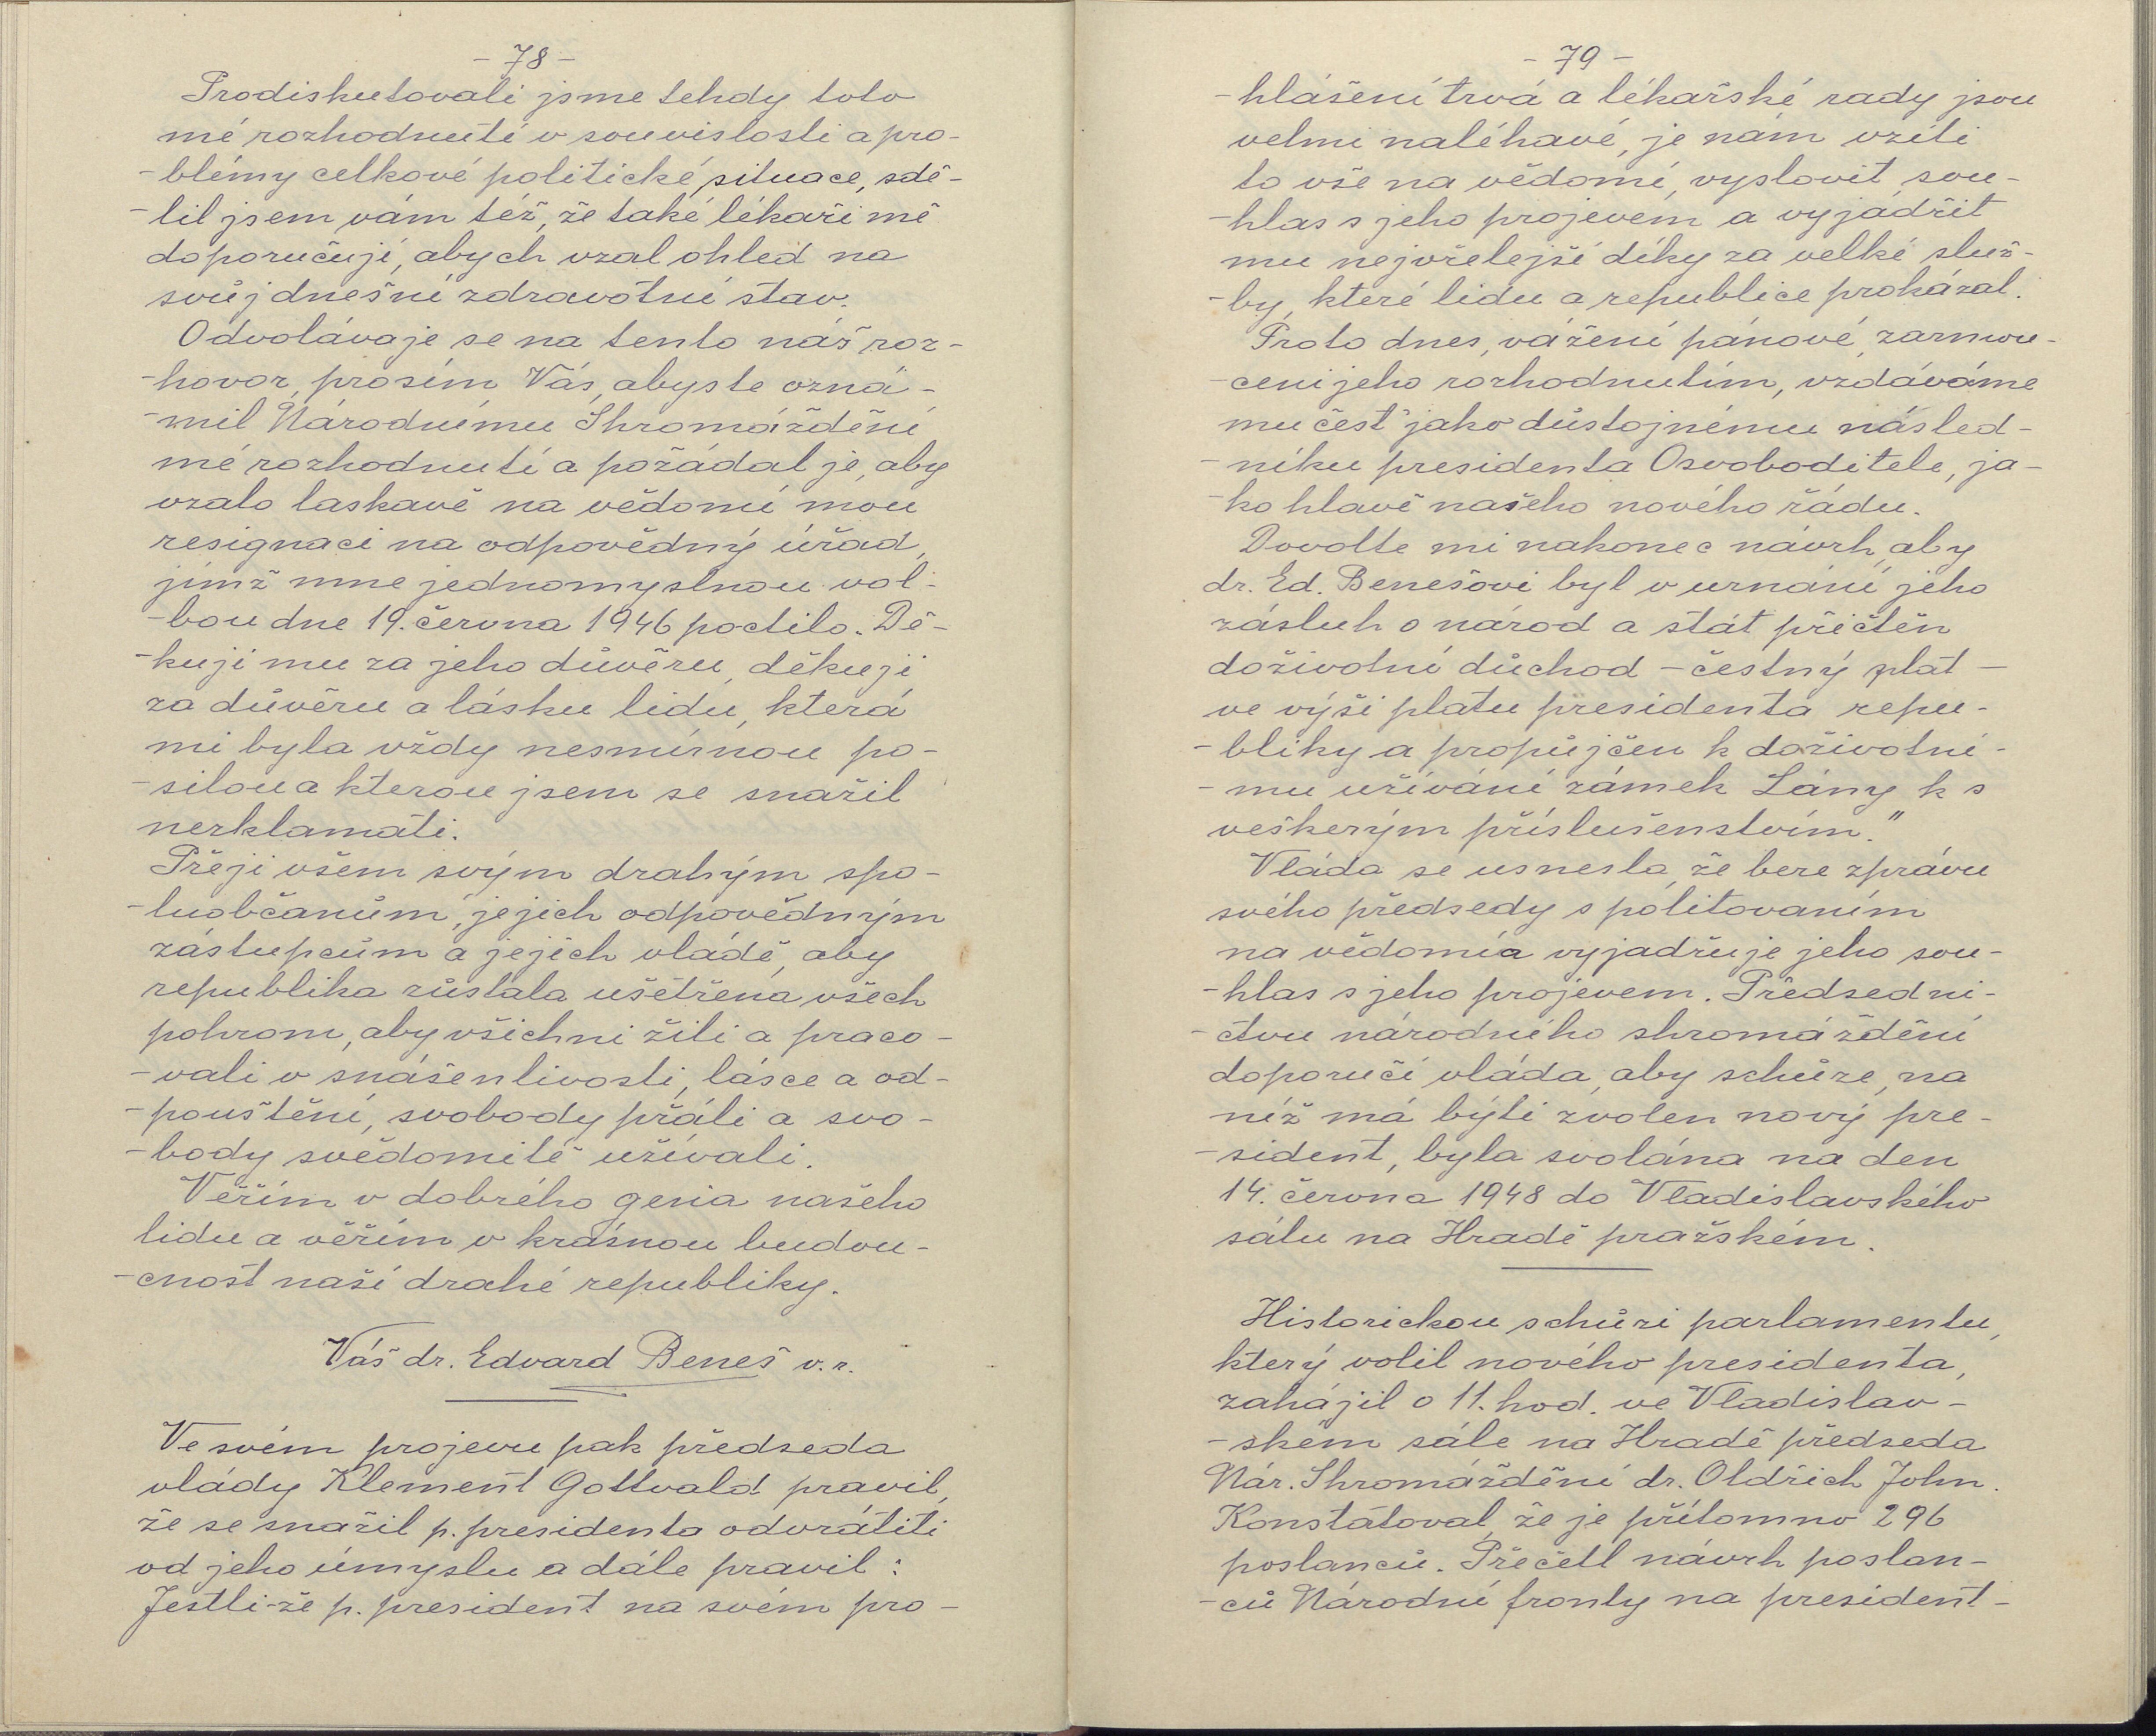 - 78 -
Prodiskutovali jsme tehdy toto
mé rozhodnutí v souvislosti a pro-
-blémy celkové politické situace, sdě-
-lil jsem vám též, že také lékaři mě
doporučují, abych vzal ohled na
svůj dnešní zdravotní stav.
Odvolávaje se na tento náš roz-
-hovor, prosím Vás, abyste ozná-
-mil Národnímu Shromáždění
mé rozhodnutí a požádal je, aby
vzalo laskavě na vědomí mou
resignaci na odpovědný úřad,
jímž mne jednomyslnou vol-
-bou dne 19. června 1946 poctilo. Dě-
-kuji mu za jeho důvěru, děkuji
za důvěru a lásku lidu, která
mi byla vždy nesmírnou po-
-silou a kterou jsem se snažil
nezklamati.
Přeji všem svým drahým spo-
-luobčanům, jejich odpovědným
zástupcům a jejich vládě, aby
republika zůstala ušetřena všech
pohrom, aby všichni žili a praco-
-vali v snášenlivosti, lásce a od-
-pouštění, svobody přáli a svo-
-body svědomitě užívali.
Věřím v dobrého genia našeho
lidu a věřím v krásnou budou-
-cnost naší drahé republiky.
Váš dr. Edvard Beneš v. r.
Ve svém projevu pak předseda
vlády Klement Gottwald pravil,
že se snažil p. presidenta odvrátiti
od jeho úmyslu a dále pravil:
Jestli-že p. president na svém pro-
- 79 -
-hlášení trvá a lékařské rady jsou
velmi naléhavé, je nám vzíti
to vše na vědomí, vyslovit sou-
-hlas s jeho projevem a vyjádřit
mu nejvřelejší díky za velké služ-
-by, které lidu a republice prokázal.
Proto dnes, vážení pánové, zarmou-
-ceni jeho rozhodnutím, vzdáváme
mu čest jako důstojnému násled-
-níku presidenta Osvoboditele, ja-
-ko hlavě našeho nového řádu.
Dovolte mi nakonec návrh, aby
dr. Ed. Benešovi byl v uznání jeho
zásluh o národ a stát přičtěn
doživotní důchod - čestný plat -
ve výši platu presidenta repu-
-bliky a propůjčen k doživotní-
-mu užívání zámek Lány k s
veškerým příslušenstvím."
Vláda se usnesla, že bere zprávu
svého předsedy s politováním
na vědomí a vyjadřuje jeho sou-
-hlas s jeho projevem. Předsedni-
-ctvu národního shromáždění
doporučí vláda, aby schůze, na
níž má býti zvolen nový pre-
-sident, byla svolána na den
14. června 1948 do Vladislavského
sálu na Hradě pražském.
Historickou schůzi parlamentu,
který volil nového presidenta,
zahájil o 11. hod. ve Vladislav-
-ském sále na Hradě předseda
Nár. Shromáždění dr. Oldřich John.
Konstatoval, že je přítomno 296
poslanců. Přečetl návrh poslan-
-ců Národní fronty na president-